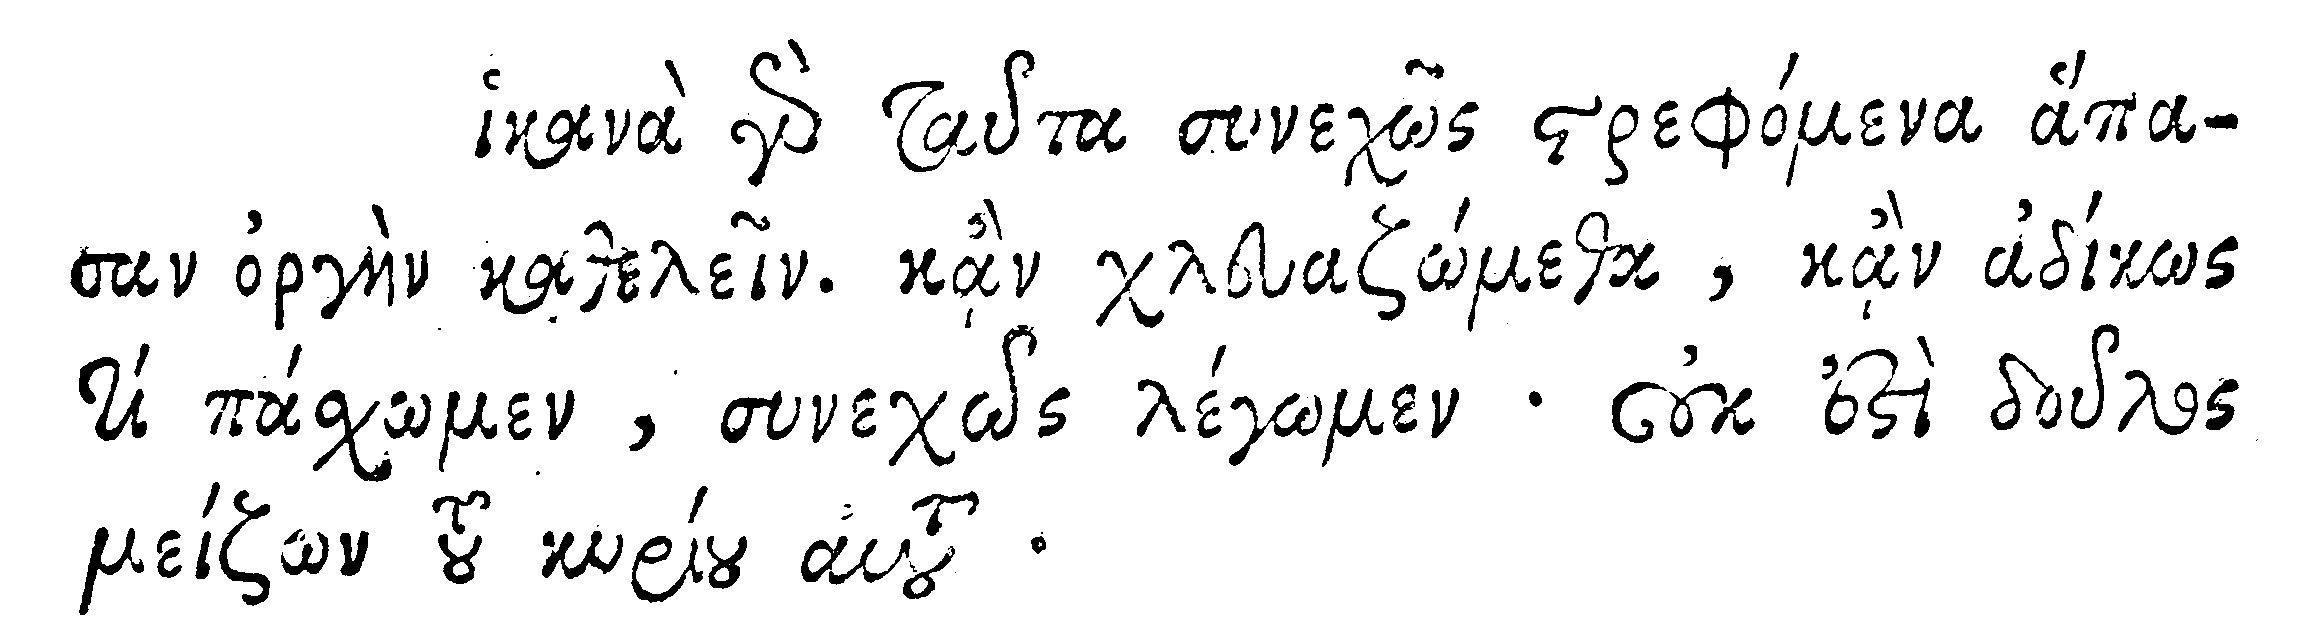 ἱκανὰ γὰρ ταῦτα συνεχῶς στρεφόμενα ἅπα-
σαν ὀργὴν καθελεῖν. κᾂν χλευαζώμεθα, κᾂν ἀδίκως
τί πάσχωμεν, συνεχῶς λέγωμεν· οὐκ ἐστὶ δοῦλος
μείζων τοῦ κυρίου αὐτοῦ·